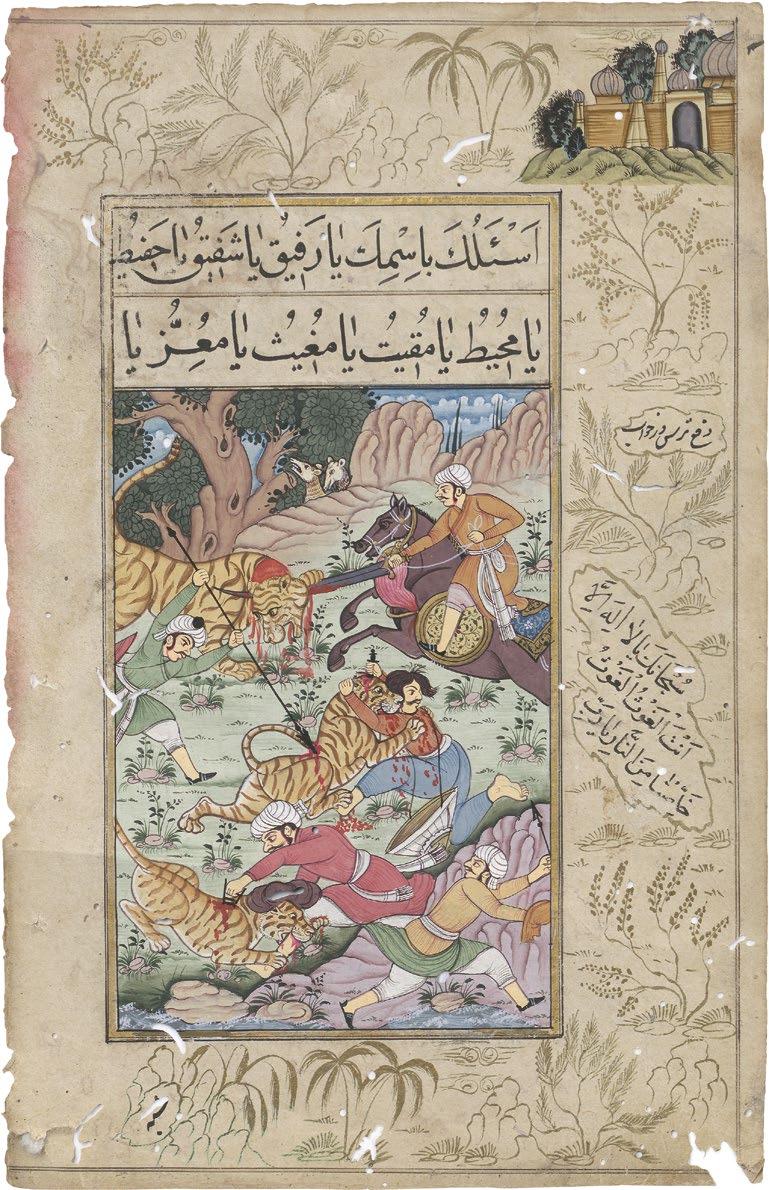 اَسْئَلُكَ بِاسْمِكَ يَا رَفِيقُ يَا شَفِيقُ يَا حَفِيظُ
يَا مُحِيطُ يَا مُقِيتُ يَا مُغِيثُ يَا مُعِزُّ يَا
دفع ترس در خواب
سُبْحَانَكَ يَا لَا اِلَهَ اِلَّا
اَنْتَ الْغَوْثُ الْغَوْثُ
خَلِّصْنَا مِنَ النَّارِ يَا رَبِّ